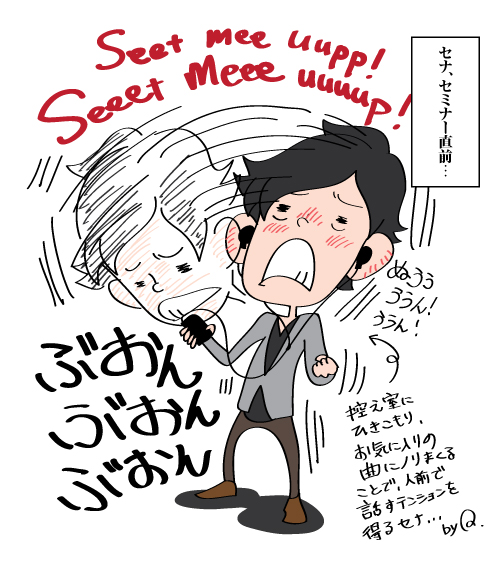 Seet mee uupp!
Seeet Meee uuuup!
セナ、セミナー直前…
ぬうぅ
ううん!
ううん!
ぶおん
ぶおん
ぶおん
控え室に
ひきこもり、
お気に入りの
曲にノリまくる
ことで、人前で
話すテンションを
得るセナ…
by Q.